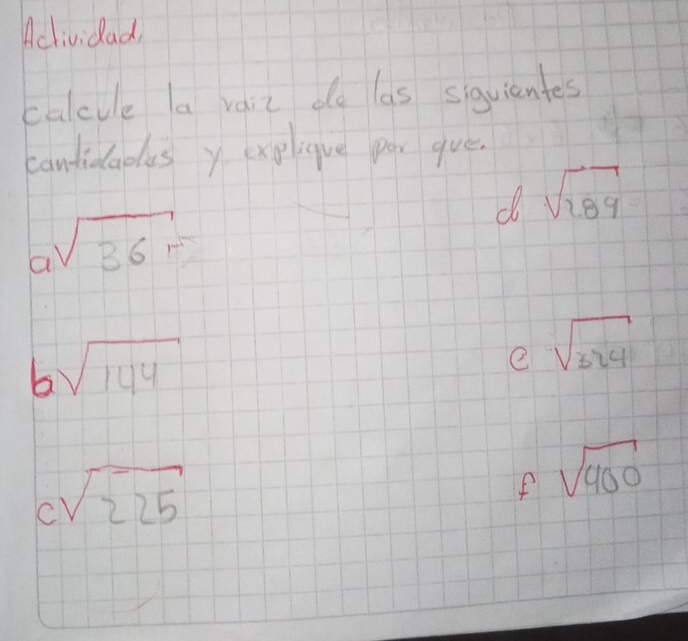 Actividad,
calcule la raiz de las siguientes
cantidades y explique por que.
a √36 =
d √289
b √144
e √324
c √225
f √400